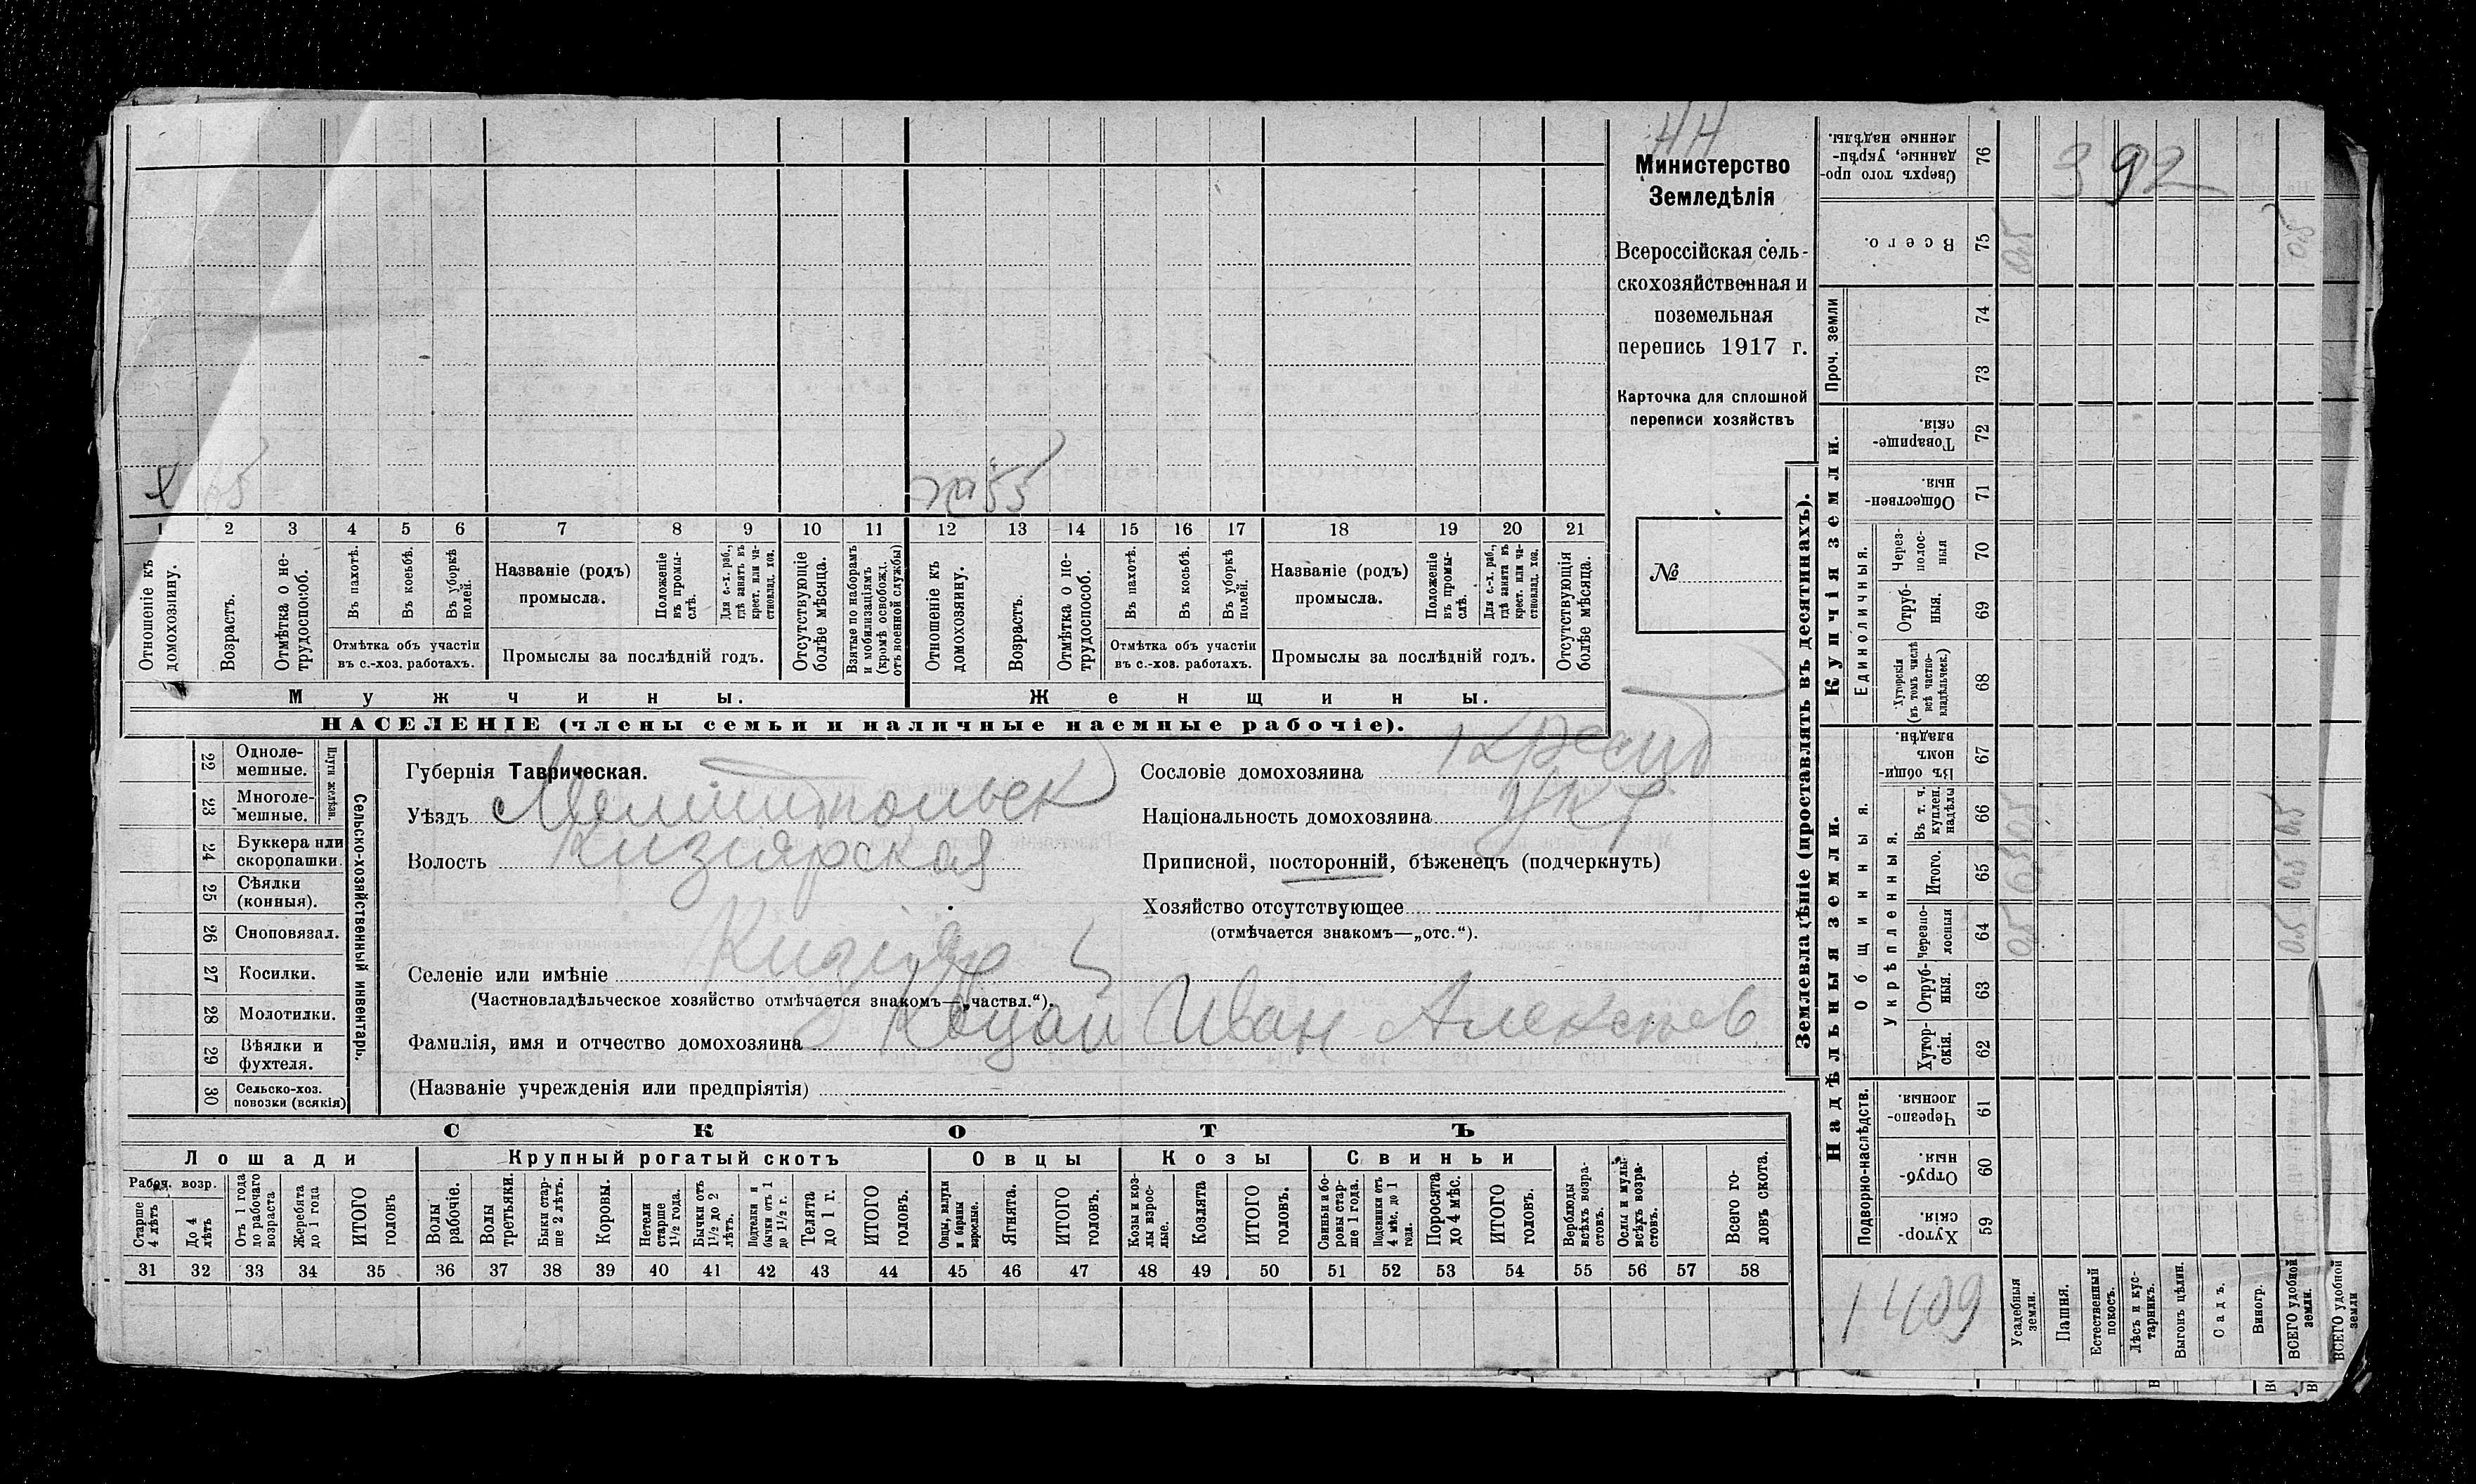 4Н
Министерство
Земледѣлія
Всероссійская сель-
скохозяйственная и
поземельная
перепись 1917 г.
Карточка для сплошной
переписи хозяйствъ
№
х 65
жена 55
1 2 3 4 5 6 7 8 9 10 11 12 13 14 15 16 17 18 19 20 21
Отношеніе къ домохозяину.
Возрастъ.
Отмѣтка о не-трудоспособ.
Въ пахотѣ.
Въ косьбѣ.
Въ уборкѣ полей.
Отмѣтка объ участіи
въ с.-хоз. работахъ.
Названіе (родъ)
промысла.
Положеніе въ промы-слѣ.
Для с.-х. раб., гдѣ занятъ въ крест. или ча-стновлад. хоз.
Промыслы за послѣдній годъ.
Отсутствующіе болѣе мѣсяца.
Взятые по наборамъ и мобилизаціямъ (кромѣ освобожд. отъ военной службы)
Отношеніе къ домохозяину.
Возрастъ.
Отмѣтка о не-трудоспособ.
Въ пахотѣ.
Въ косьбѣ.
Въ уборкѣ полей.
Отмѣтка объ участіи
въ с.-хоз. работахъ.
Названіе (родъ)
промысла.
Положеніе въ промы-слѣ.
Для с.-х. раб., гдѣ занята въ крест. или ча-стновлад. хоз.
Промыслы за послѣдній годъ.
Отсутствующія болѣе мѣсяца.
Мужчины.
Женщины.
НАСЕЛЕНІЕ (члены семьи и наличные наемные рабочіе).
22 Одноле-мешные.
23 Многоле-мешные.
Плуги желѣзн.
24 Буккера или скоропашки.
25 Сѣялки (конныя).
26 Сноповязал.
27 Косилки.
28 Молотилки.
29 Вѣялки и фухтеля.
30 Сельско-хоз. повозки (всякія)
Сельско-хозяйственный инвентарь.
Губернія Таврическая.
Уѣздъ Мелитопольск
Волость Кизіярская
Селеніе или имѣніе Кизіяр
(Частновладѣльческое хозяйство отмѣчается знакомъ—„частвл.“).
Фамилія, имя и отчество домохозяина Коцай Иван Алексѣев
(Названіе учрежденія или предпріятія)
Сословіе домохозяина крест
Національность домохозяина укр
Приписной, посторонній, бѣженецъ (подчеркнуть)
Хозяйство отсутствующее
(отмѣчается знакомъ—„отс.“).
СКОТЪ
Лошади
Крупный рогатый скотъ
Овцы
Козы
Свиньи
Рабоч. возр.
Старше 4 лѣтъ
До 4 лѣтъ
Отъ 1 года до рабочаго возраста
Жеребята до 1 года
ИТОГО головъ
Волы рабочіе.
Волы третьяки.
Быки стар-ше 2 лѣтъ.
Коровы.
Нетели старше 1½ года.
Бычки отъ 1½ до 2 лѣтъ.
Подтелки и бычки отъ 1 до 1½ г.
Телята до 1 г.
ИТОГО головъ.
Овцы, валухи и бараны взрослые.
Ягнята.
ИТОГО головъ.
Козы и коз-лы взрос-лые.
Козлята
ИТОГО головъ.
Свиньи и бо-ровы стар-ше 1 года.
Подсвинки отъ 4 мѣс. до 1 года.
Поросята до 4 мѣс.
ИТОГО головъ.
Верблюды всѣхъ возра-стовъ.
Ослы и мулы всѣхъ возра-стовъ.
Всего го-ловъ скота.
31 32 33 34 35 36 37 38 39 40 41 42 43 44 45 46 47 48 49 50 51 52 53 54 55 56 57 58
Землевладѣніе (проставлять въ десятинахъ).
Надѣльныя земли.
Купчія земли.
Проч. земли
Подворно-наслѣдств.
Общинныя.
Укрѣпленныя.
Единоличныя.
Сверхъ того про-данные, укрѣп-ленные надѣлы. 76
Всего. 75
74
73
Товарище-скія. 72
Обществен-ныя. 71
Через-полос-ныя 70
Отруб-ныя. 69
Хуторскія (въ томъ числѣ всѣ частно-владѣльческ.) 68
Въ общи-номъ владѣн. 67
Въ т. ч. куплен. надѣлы 66
Итого. 65
Черезпо-лосныя 64
Отруб-ныя. 63
Хутор-скія. 62
Черезпо-лосныя. 61
Отруб-ныя. 60
Хутор-скія. 59
392
05
05
05
05
05 05 05
1409
Усадебныя земли.
Пашня.
Естественный покосъ.
Лѣсъ и кус-тарникъ.
Выгонъ цѣлин.
Садъ.
Виногр.
ВСЕГО удобной земли.
ВСЕГО удобной земли